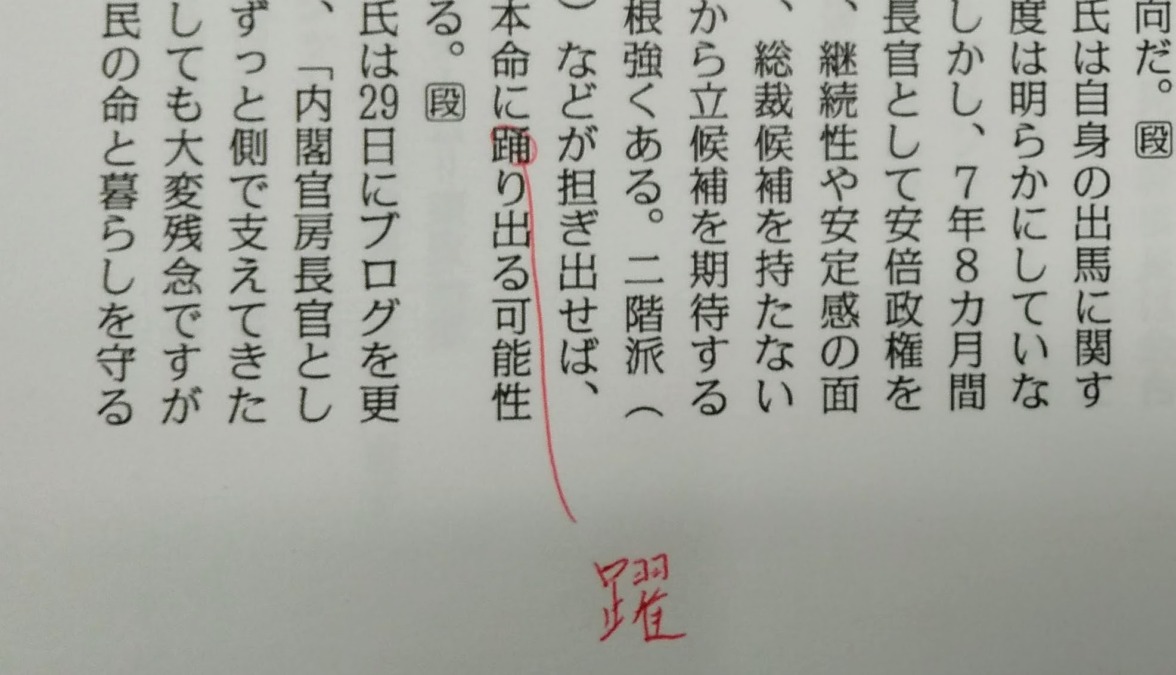 向だ。段
氏は自身の出馬に関す
度は明らかにしていな
しかし、7年8カ月間
長官として安倍政権を
、継続性や安定感の面
、総裁候補を持たない
から立候補を期待する
根強くある。二階派（
）などが担ぎ出せば、
本命に踊り出る可能性
る。段
氏は29日にブログを更
、「内閣官房長官とし
ずっと側で支えてきた
しても大変残念ですが
民の命と暮らしを守る
躍